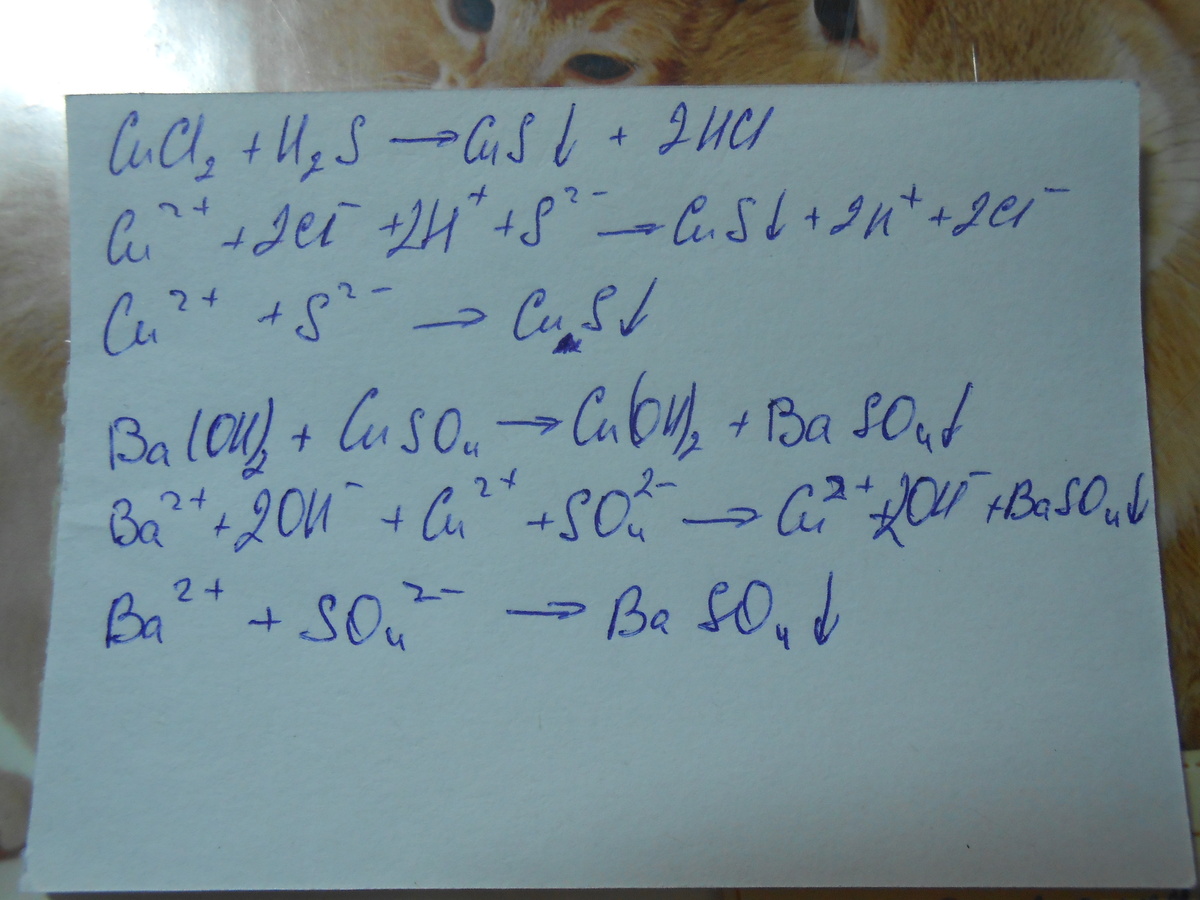 CuCl₂ + H₂S → CuS↓ + 2HCl
Cu²⁺ + 2Cl⁻ + 2H⁺ + S²⁻ → CuS↓ + 2H⁺ + 2Cl⁻
Cu²⁺ + S²⁻ → CuS↓
Ba(OH)₂ + CuSO₄ → Cu(OH)₂ + BaSO₄↓
Ba²⁺ + 2OH⁻ + Cu²⁺ + SO₄²⁻ → Cu²⁺ + 2OH⁻ + BaSO₄↓
Ba²⁺ + SO₄²⁻ → BaSO₄↓